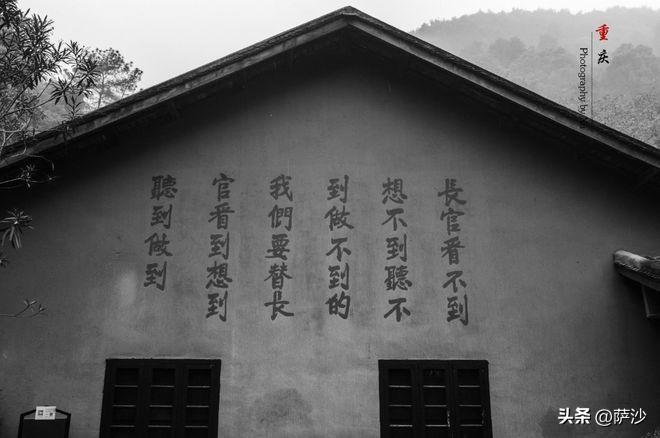 長官看不到
想不到聽不
到做不到的
我們要替長
官看到想到
聽到做到
重庆
Photography by
头条 @萨沙